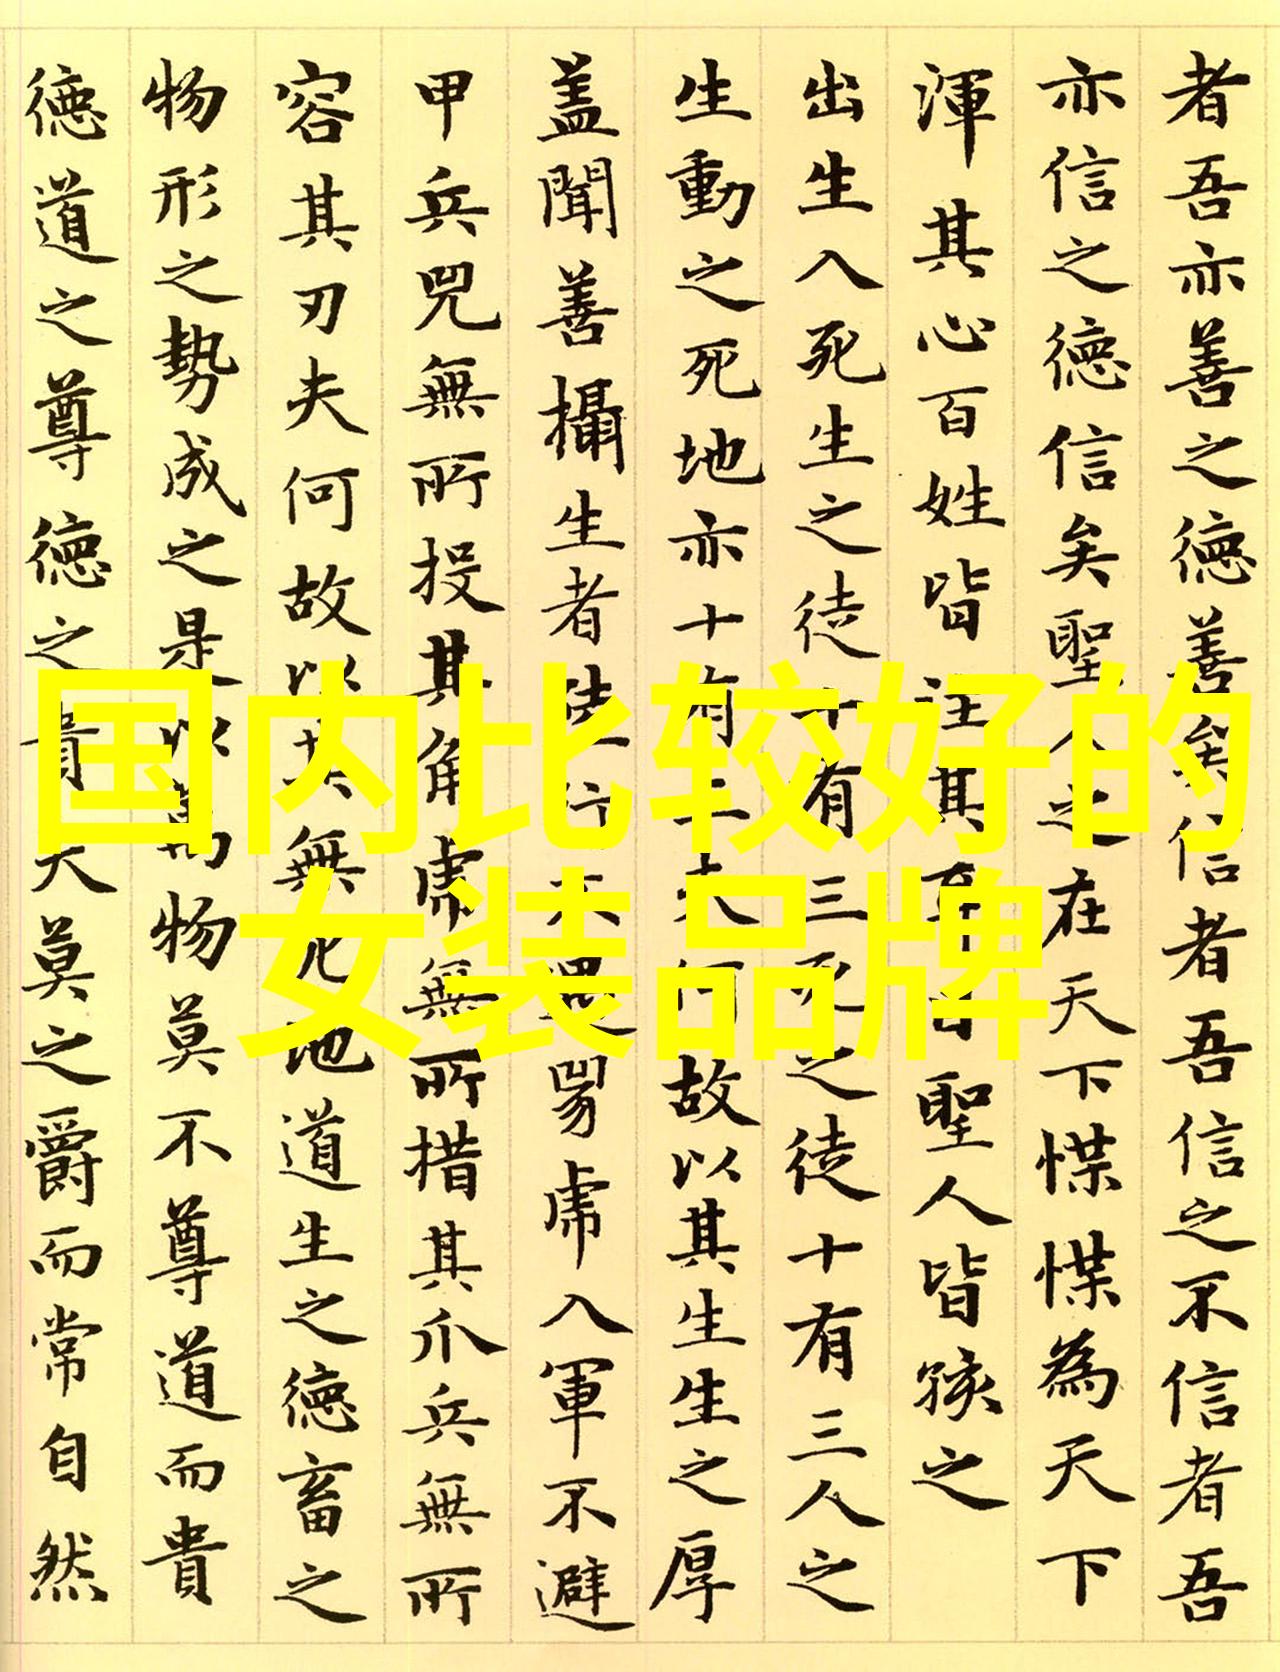 者吾亦善之德善矣信者吾信之不信者吾
亦信之德信矣聖人之在天下惵惵為天下
渾其心百姓皆注其耳目聖人皆孩之
出生入死生之徒十有三死之徒十有三人之
生動之死地亦十有三夫何故以其生生之厚
盖聞善攝生者陸行不遇兕虎入軍不避
甲兵兕無所投其角虎無所措其爪兵無所
容其刃夫何故以其無死地道生之德畜之
物形之勢成之是以萬物莫不尊道而貴
德道之尊德之貴夫莫之爵而常自然
国内比较好的
女装品牌